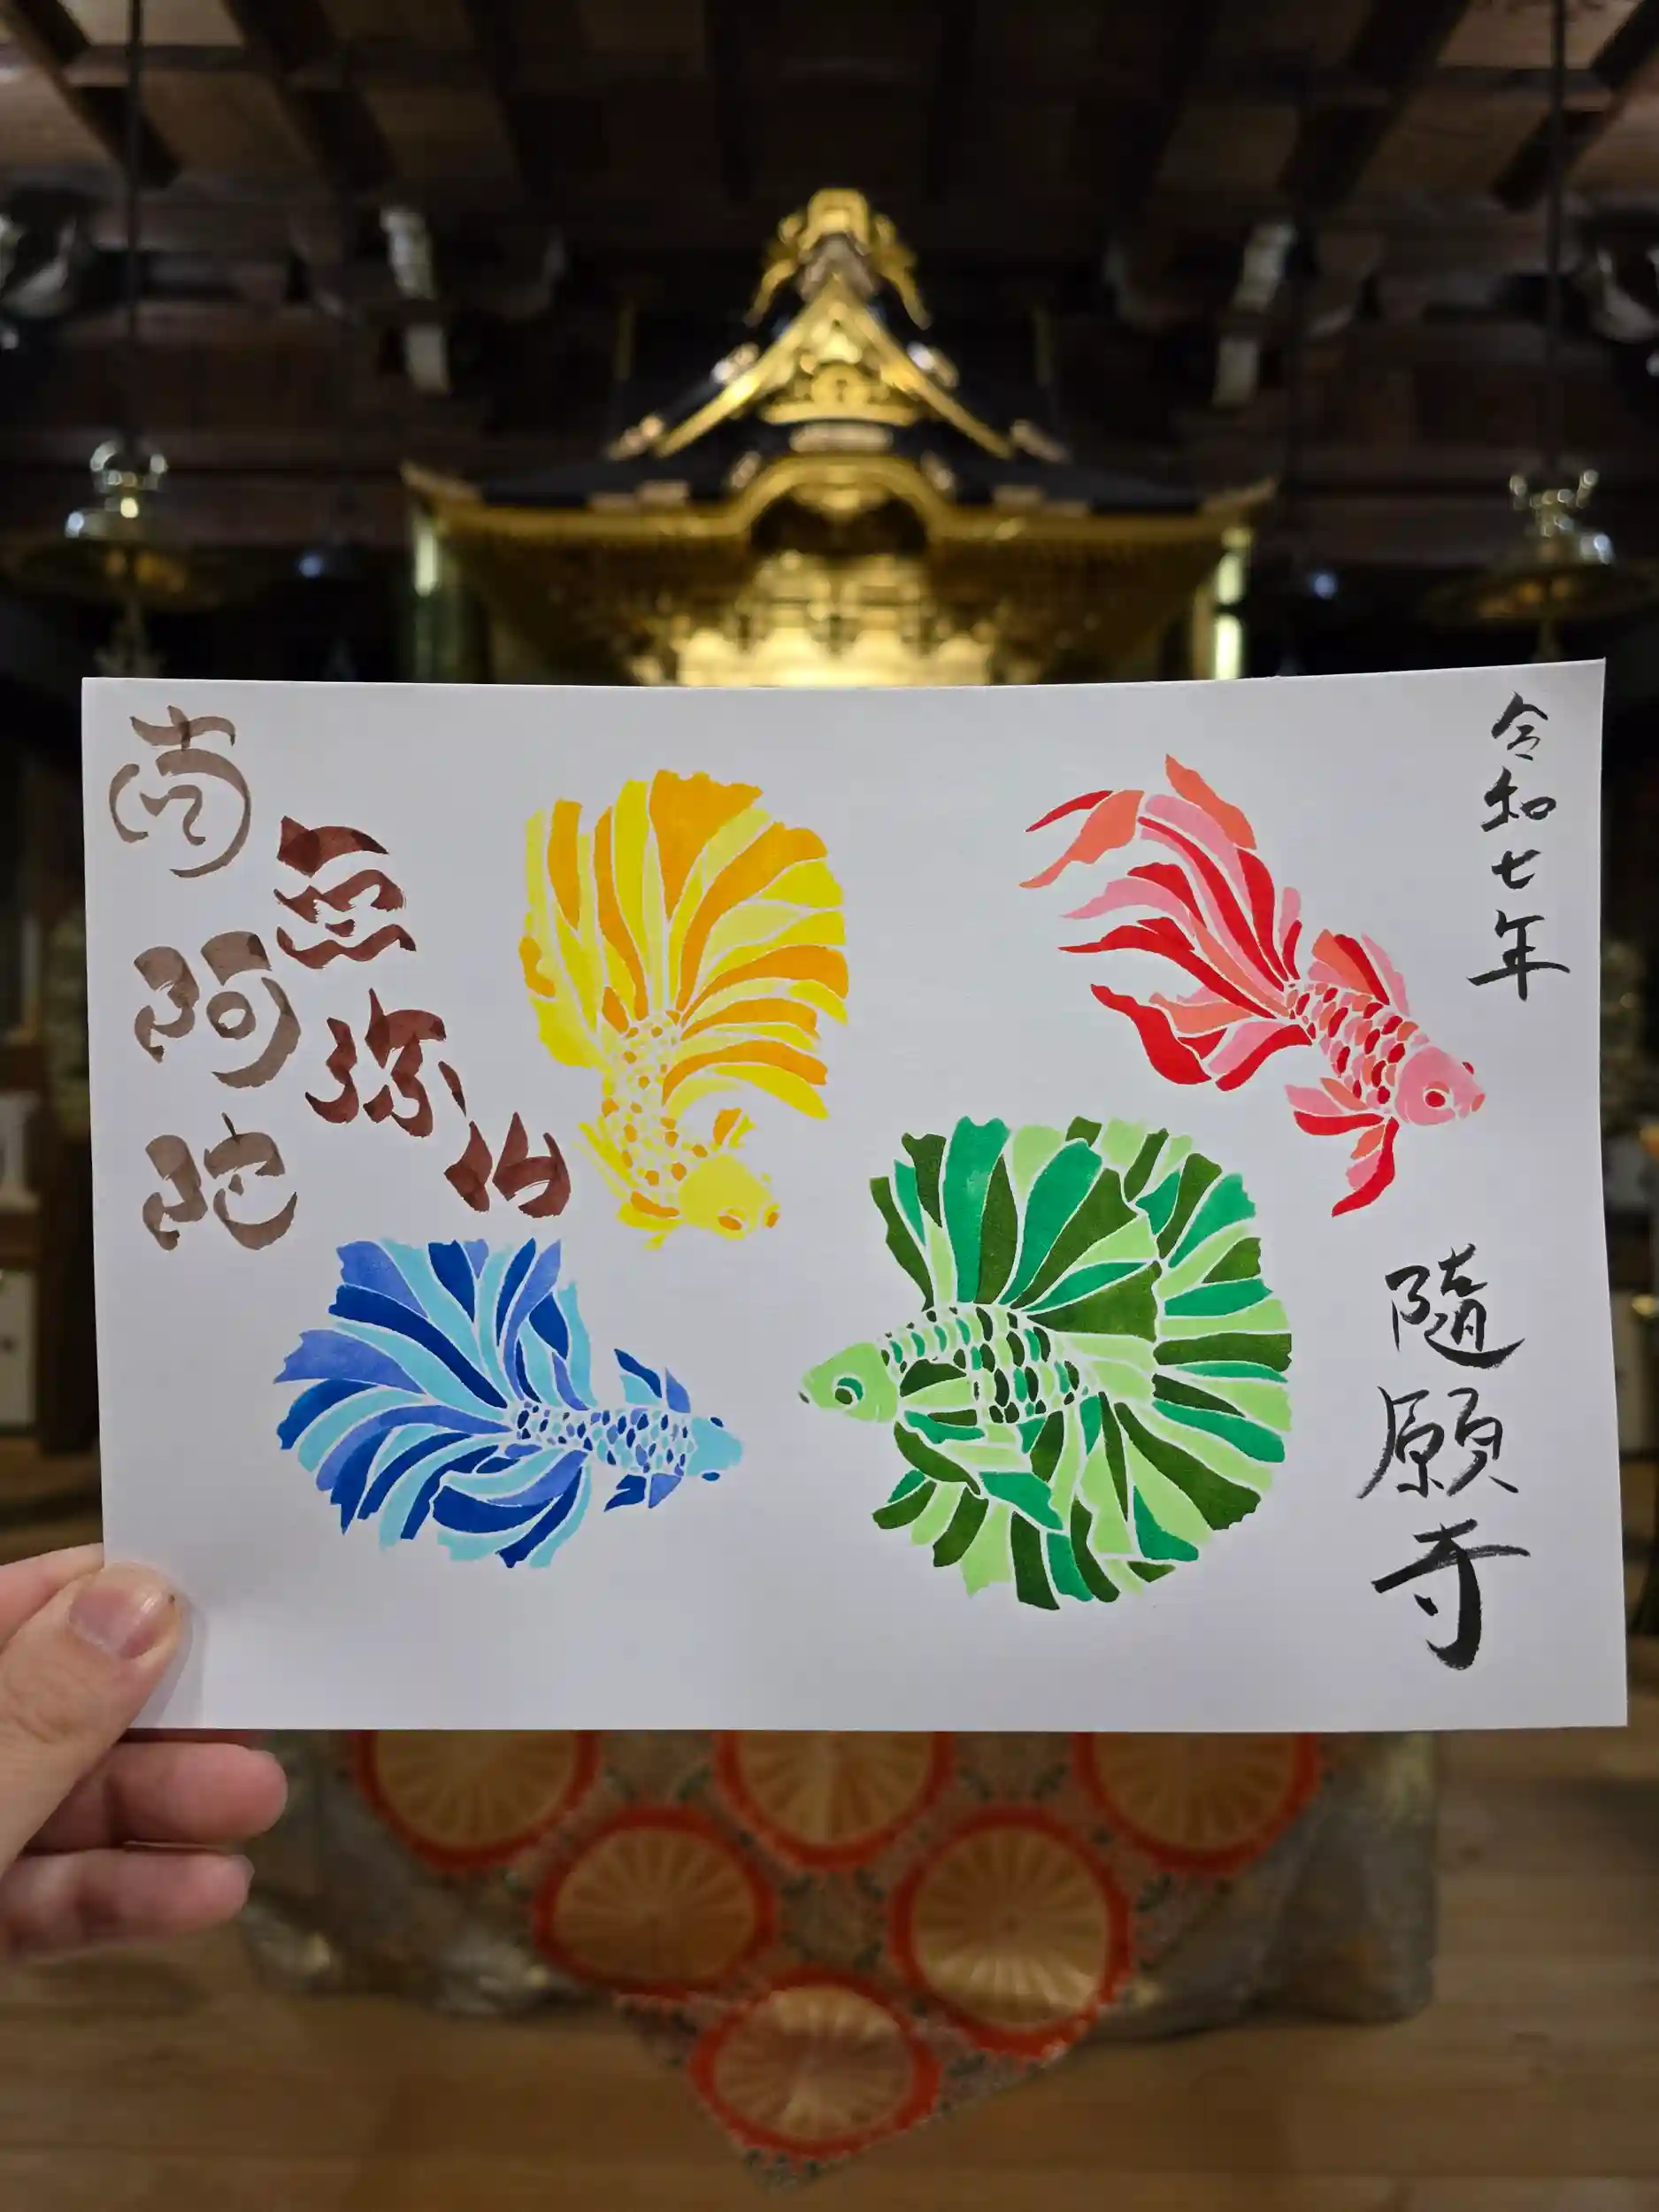 令和七年
随願寺
南無阿弥陀仏